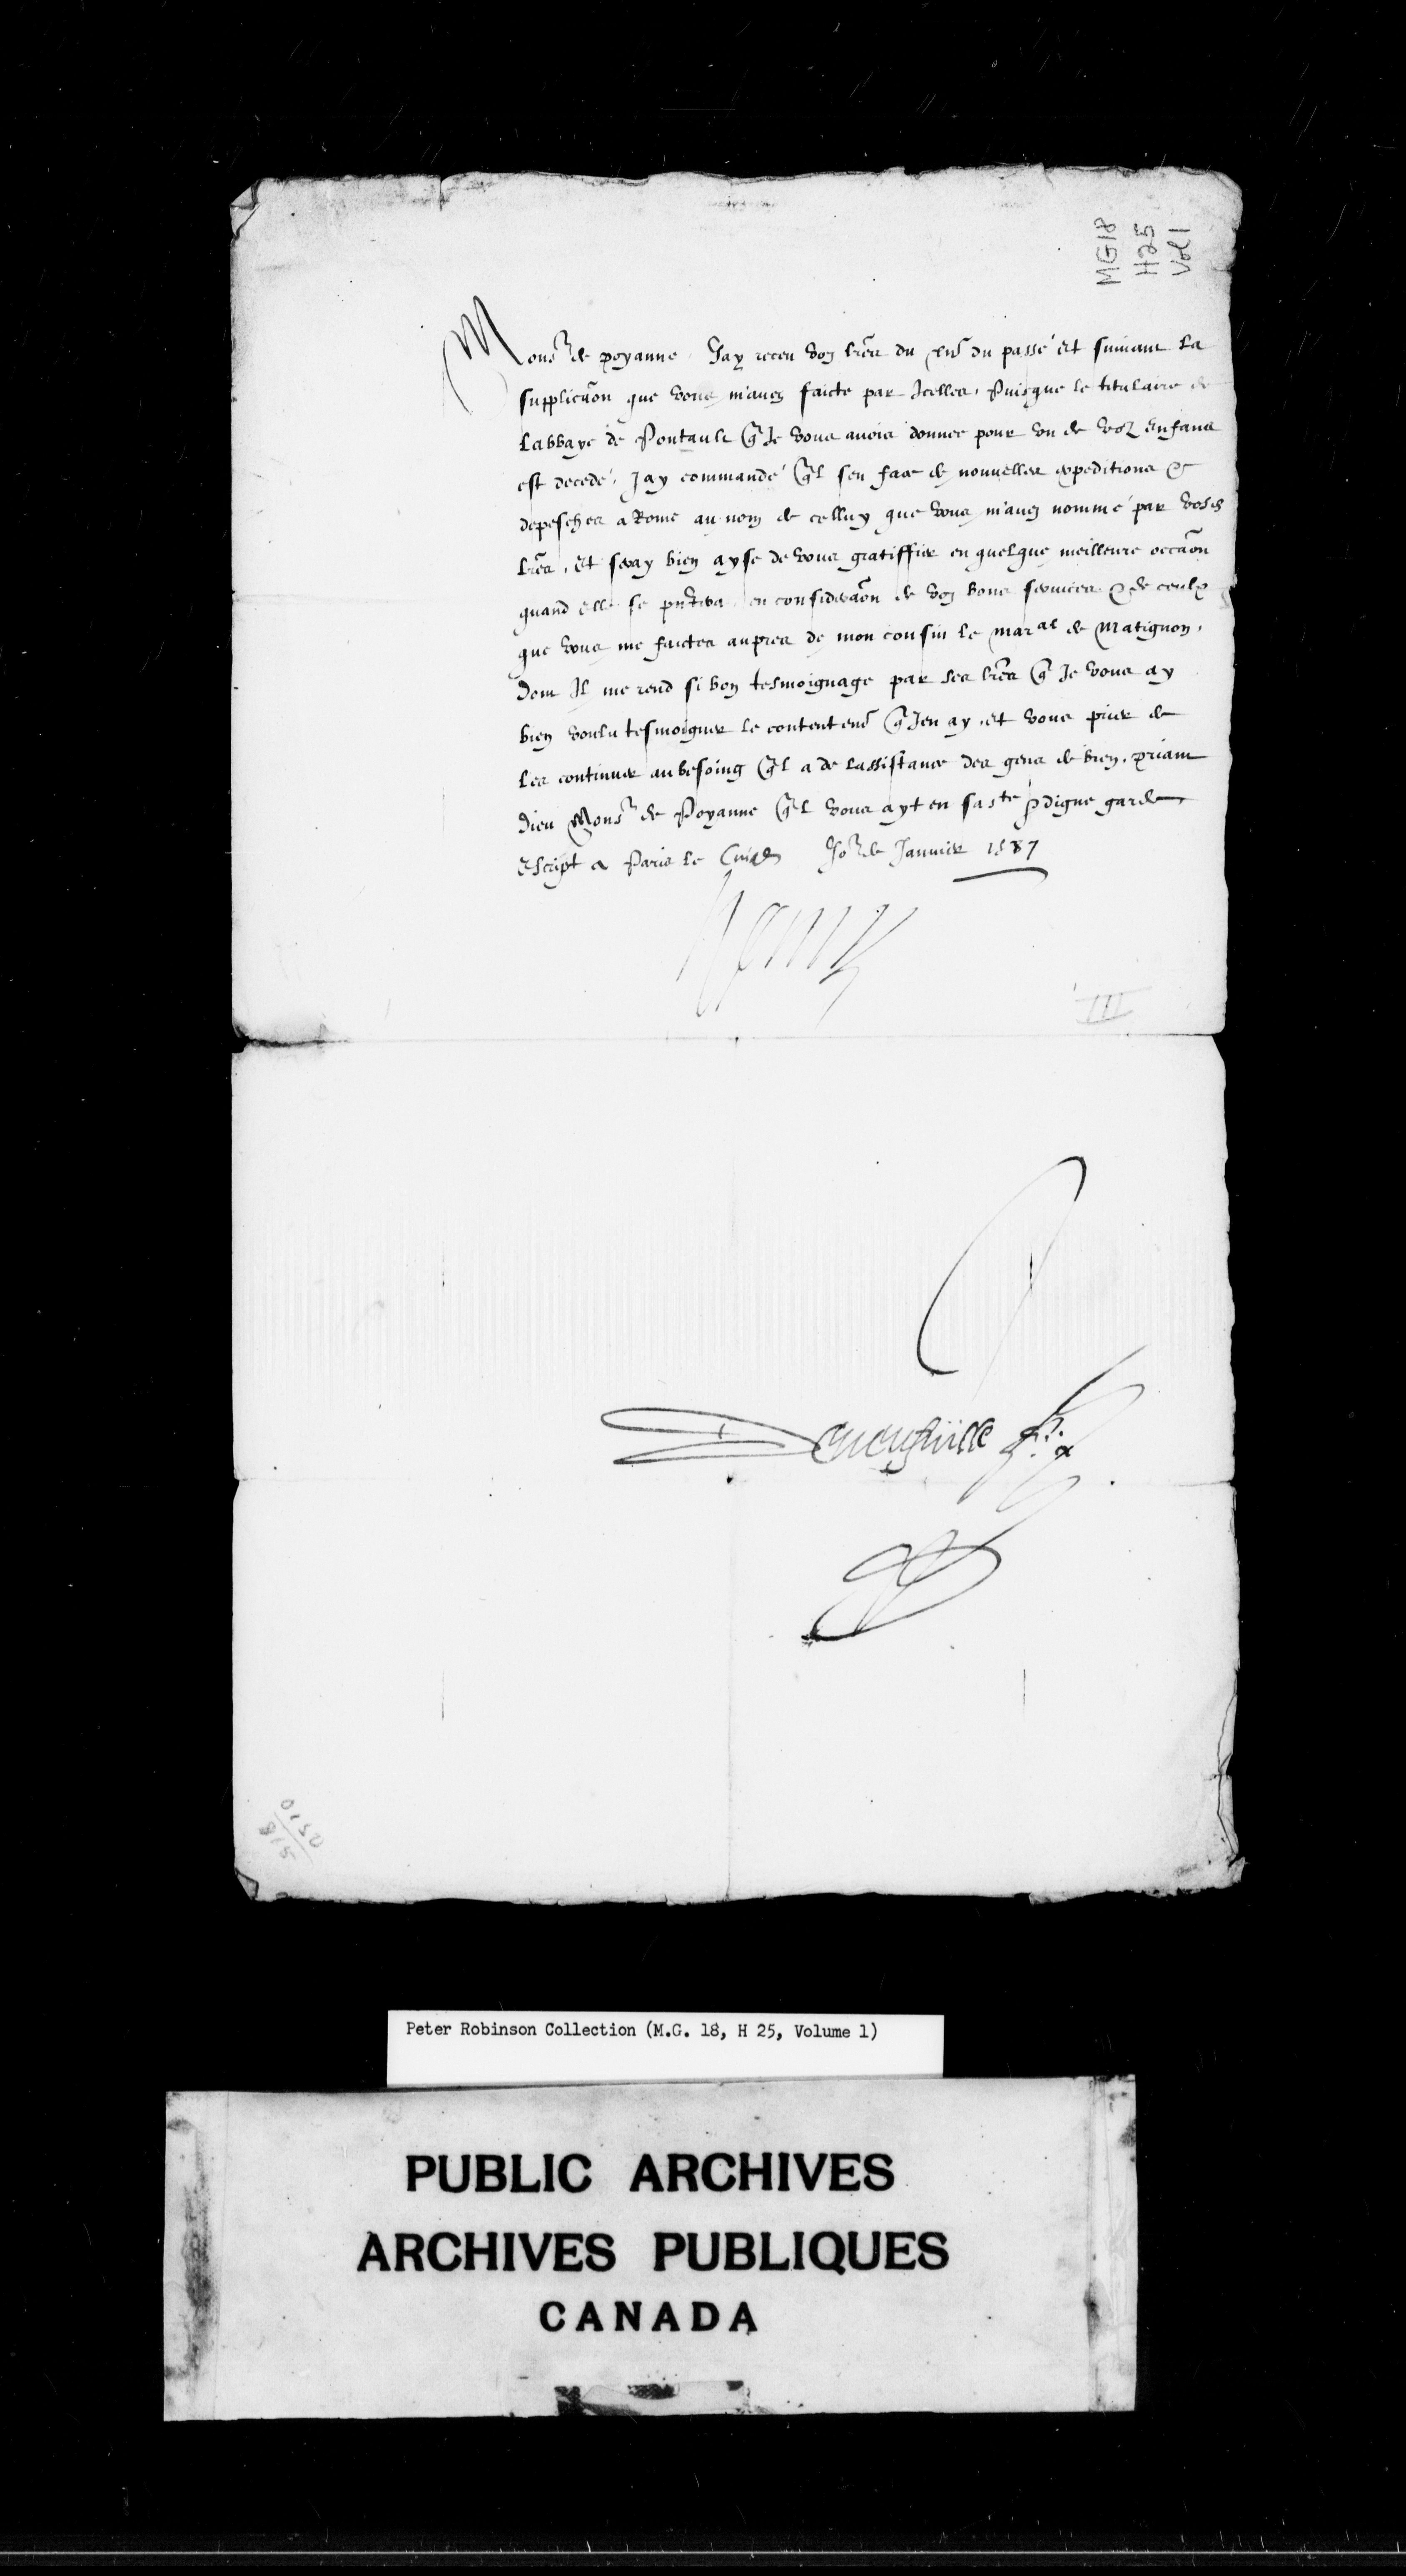 MG18
H25
Vol 1
Mons.r de poyanne, Jay receu voz lr̃es du du passé Et suiuant la
supplicãon que vous mauez faicte par Icelles, Puisque le titulaire de
Labbaye de Pontault q̃ Je vous auois donnee pour vn de voz Enfans
est decedé, Jay commandé q̃l sen face de nouuelles expeditions &
depesches a Rome au nom de celluy que vous mauez nommé par vosd.
lr̃es, Et seray bien ayse de vous gratiffier en quelque meilleure occãon
quand Elle se pñtera, en considerãon de voz bons seruices & de ceulx
que vous me faictes aupres de mon cousin le mar.al de Matignon,
dont Il me rend si bon tesmoignage par ses lr̃es q̃ Je vous ay
bien voulu tesmoigner le contentem̃t q̃ Jen ay, et vous prier de
les continuer au besoing q̃l a de lassistance des gens de bien, priant
Dieu Mons.r de Poyanne q̃l vous ayt en sa s.te & digne garde
Escript a Paris le Jo.r de Januier 1587
Henry
III
Deneufuille
Peter Robinson Collection (M.G. 18, H 25, Volume 1)
PUBLIC ARCHIVES
ARCHIVES PUBLIQUES
CANADA